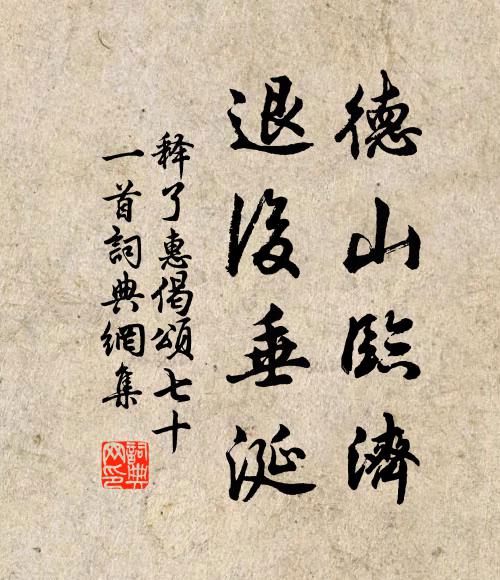 德山臨濟
退後垂涎
释了惠偈頌七十
一首詞典網集
詞典網印